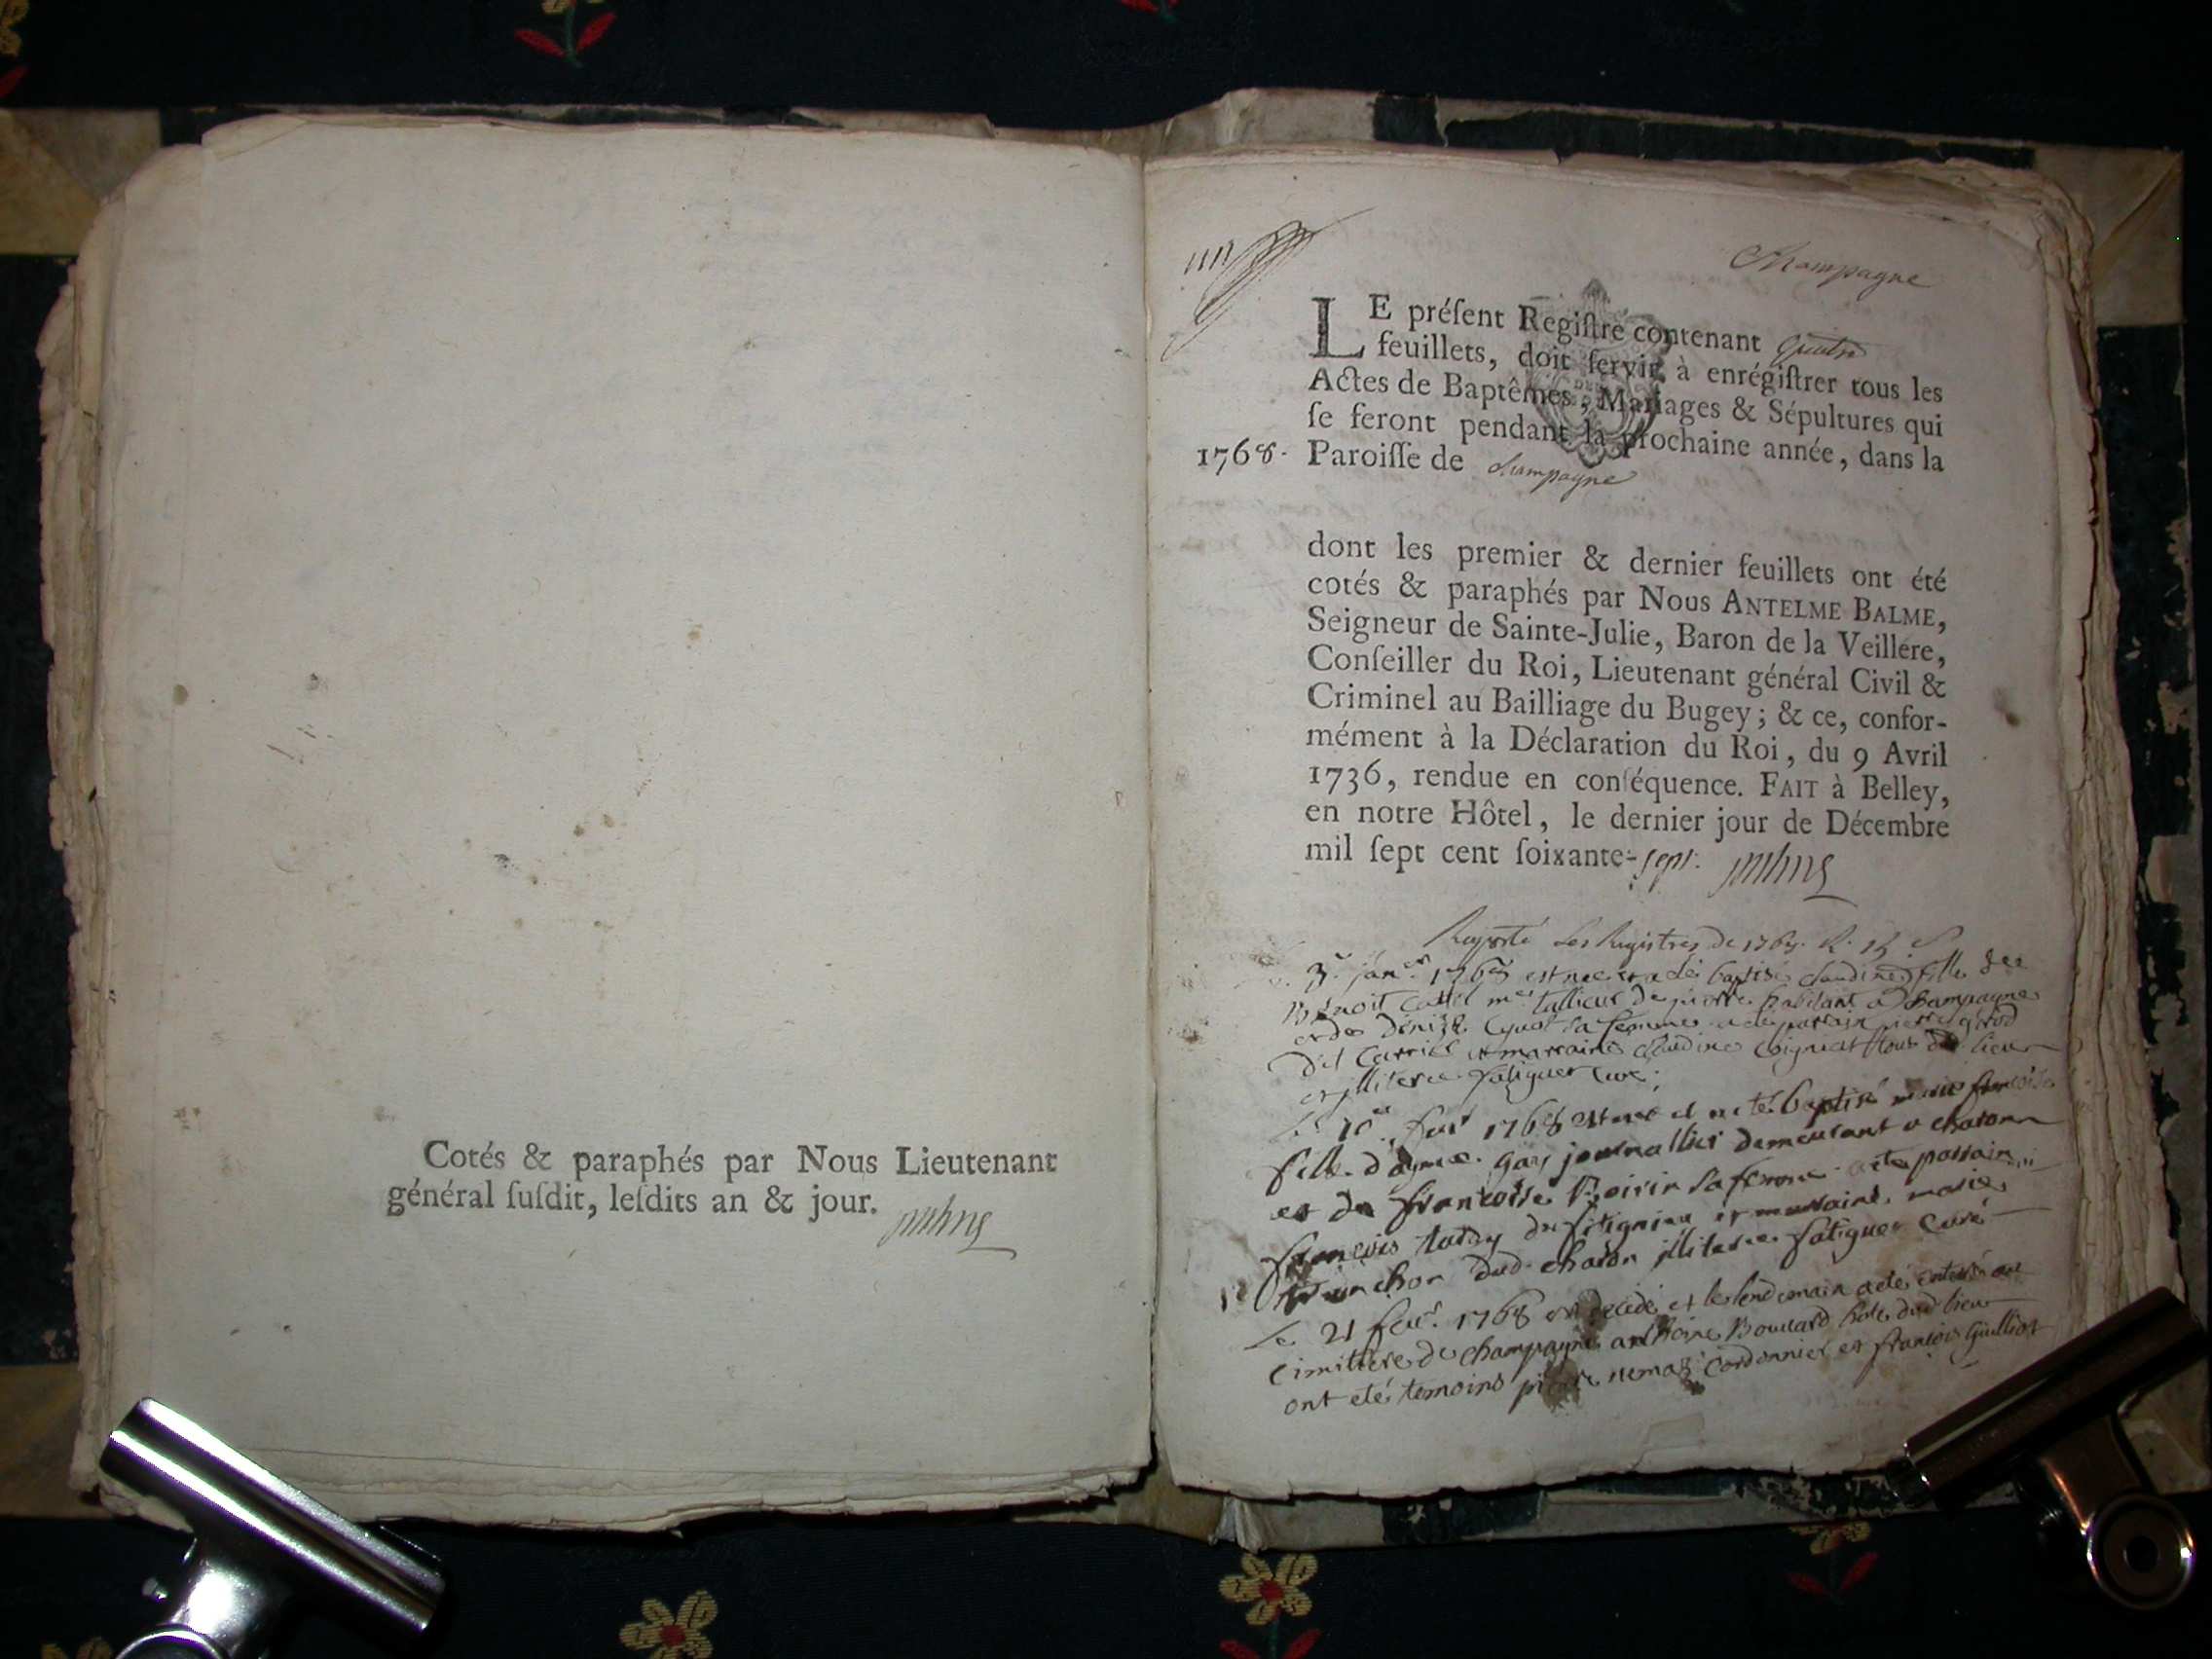 Cotés & paraphés par Nous Lieutenant
général ſuſdit, leſdits an & jour.
Champagne
LE préſent Regiſtre contenant quatre
feuillets, doit ſervir à enrégiſtrer tous les
Actes de Baptêmes, Mariages & Sépultures qui
ſe feront pendant la prochaine année, dans la
1768. Paroiſſe de champagne
dont les premier & dernier feuillets ont été
cotés & paraphés par Nous ANTELME BALME,
Seigneur de Sainte-Julie, Baron de la Veillere,
Conſeiller du Roi, Lieutenant général Civil &
Criminel au Bailliage du Bugey; & ce, confor-
mément à la Déclaration du Roi, du 9 Avril
1736, rendue en conſéquence. FAIT à Belley,
en notre Hôtel, le dernier jour de Décembre
mil ſept cent ſoixante-sept.
Les Registres de
1768 est nee et a eté baptisé claudine fille de
Benoit tallieur de pierre habitant a Champagne
et de sa femme a eté parrain pierre girod
dit et marraine claudine tous dud lieu
et illiteree fatiguet curé
1768 est nee et a eté baptisé marie francoise
fille d'ayme gay journallier demeurant a charon
et de francoise sa femme a ete parrain
francois tardy de fitignieu et marraine marie
dud charon illiteree fatiguet curé
le 21 fev. 1768 est decedé et le lendemain a eté enterré au
cimittiere de champagne anthoine Bouvard dud lieu
ont eté temoins pierre cordonnier et francois guilliot